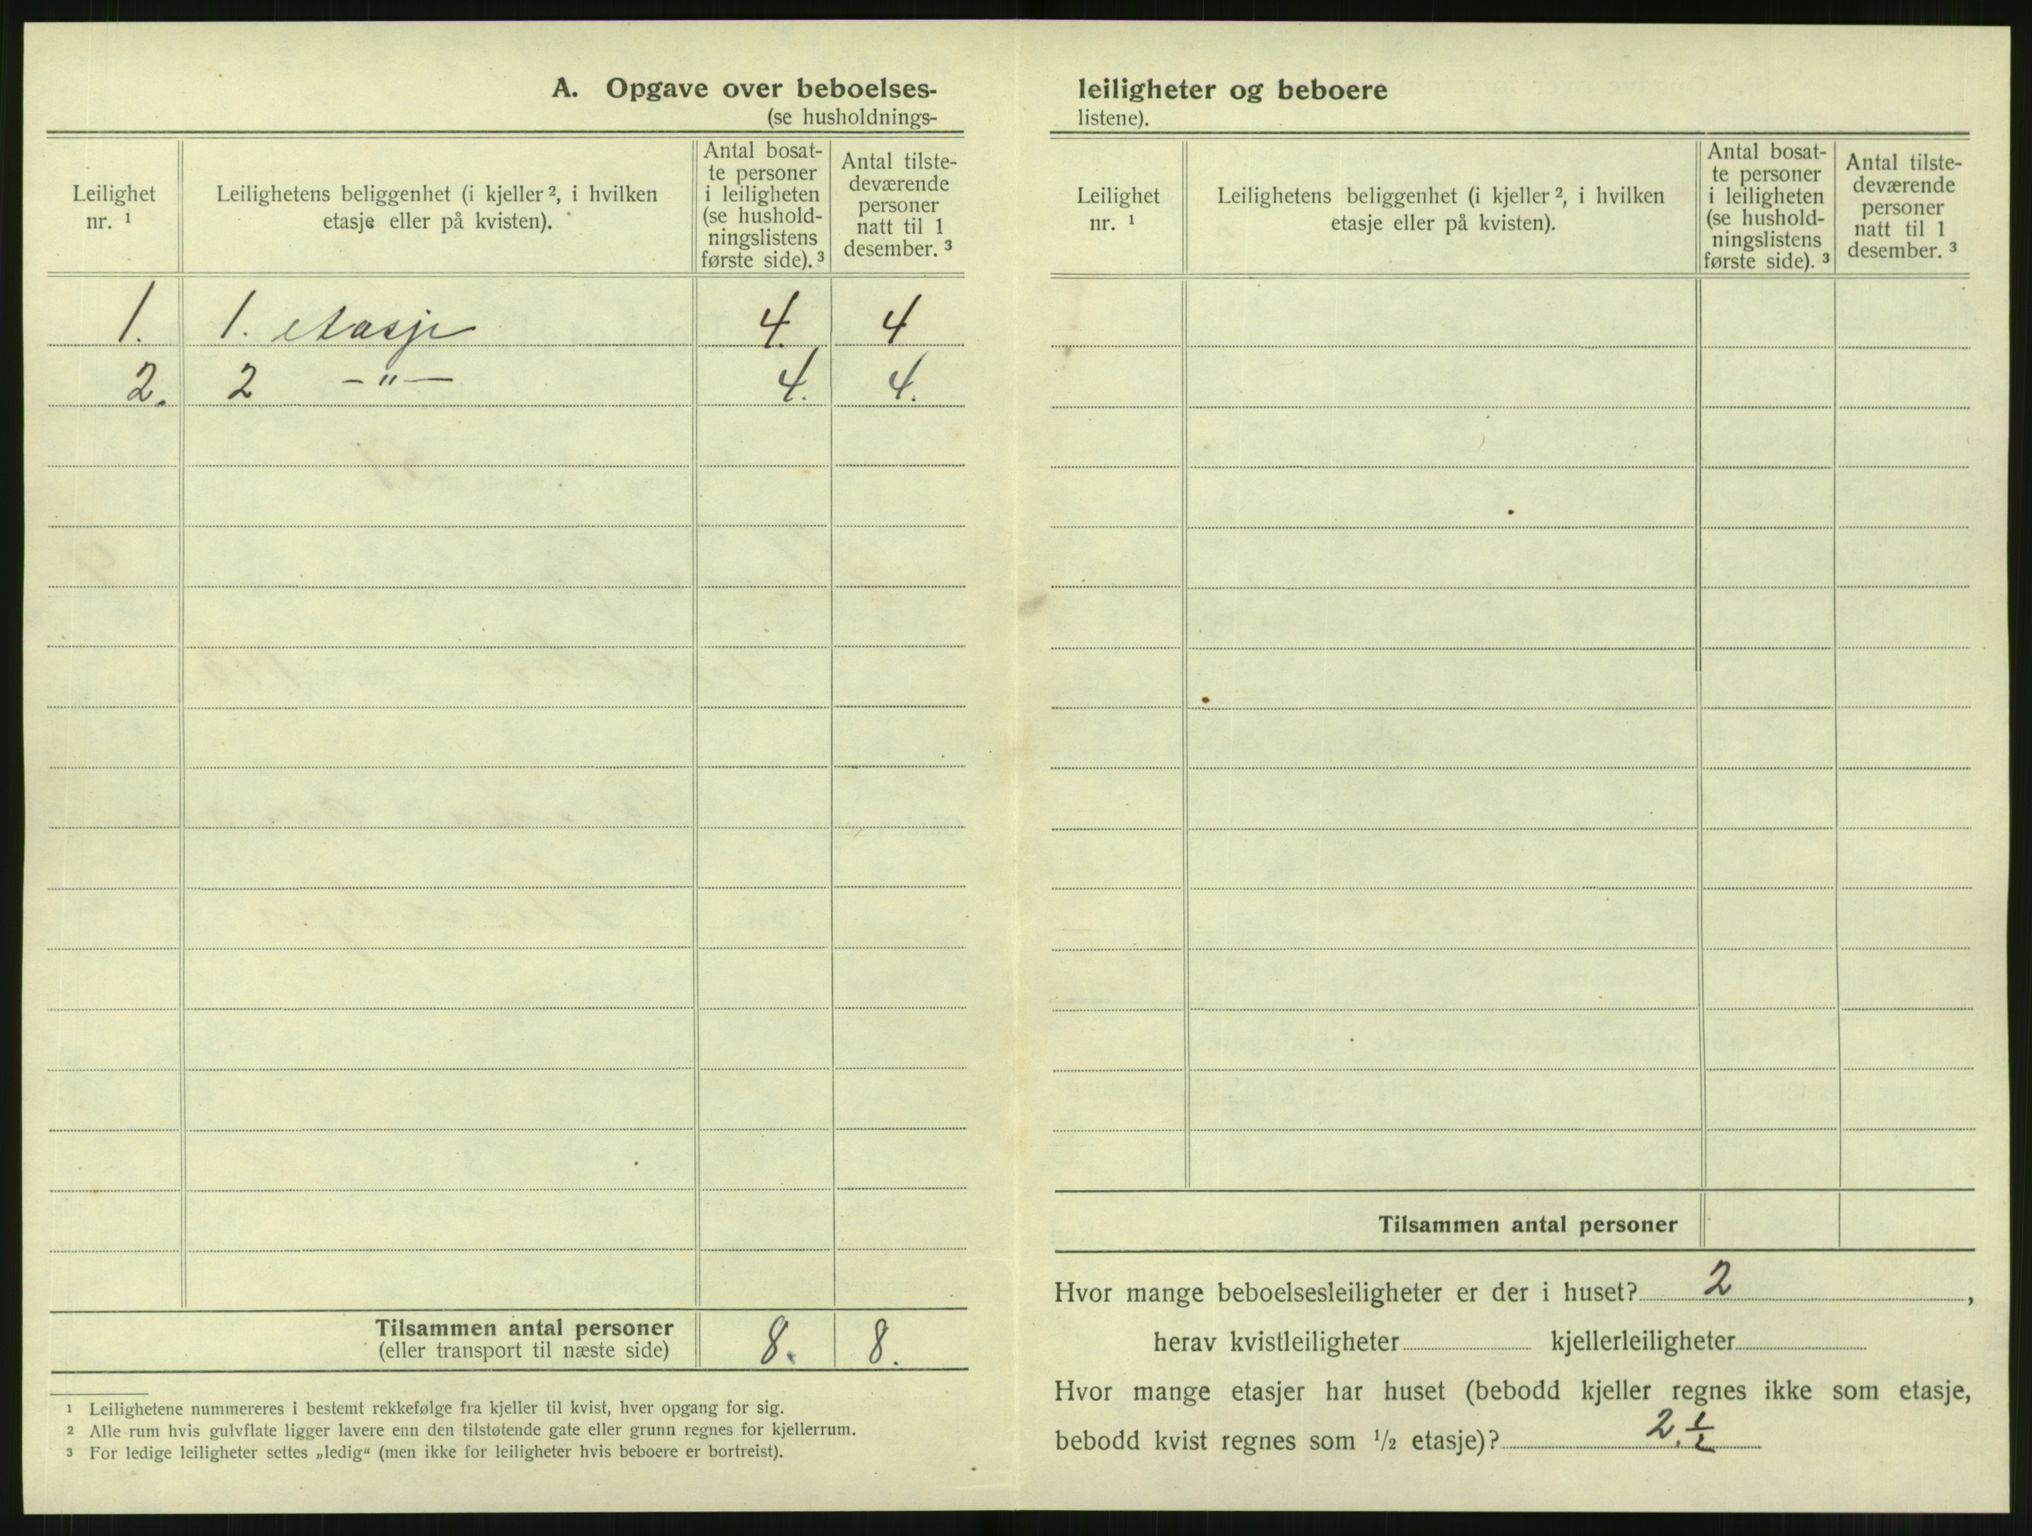 A. Opgave over beboelses-
(se husholdnings-
Leilighet nr. 1
Leilighetens beliggenhet (i kjeller 2, i hvilken etasje eller på kvisten).
Antal bosat-
te personer
i leiligheten
(se hushold-
ningslistens
første side). 3
Antal tilste-
deværende
personer
natt til 1
desember. 3
1. 1. etasje 4. 4
2. 2 —"— 4. 4.
Tilsammen antal personer 8. 8.
(eller transport til næste side)
1 Leilighetene nummereres i bestemt rekkefølge fra kjeller til kvist, hver opgang for sig.
2 Alle rum hvis gulvflate ligger lavere enn den tilstøtende gate eller grunn regnes for kjellerrum.
3 For ledige leiligheter settes „ledig“ (men ikke for leiligheter hvis beboere er bortreist).
leiligheter og beboere
listene).
Leilighet nr. 1
Leilighetens beliggenhet (i kjeller 2, i hvilken etasje eller på kvisten).
Antal bosat-
te personer
i leiligheten
(se hushold-
ningslistens
første side). 3
Antal tilste-
deværende
personer
natt til 1
desember. 3
Tilsammen antal personer
Hvor mange beboelsesleiligheter er der i huset? 2,
herav kvistleiligheter kjellerleiligheter
Hvor mange etasjer har huset (bebodd kjeller regnes ikke som etasje,
bebodd kvist regnes som 1/2 etasje)? 2. 1/2